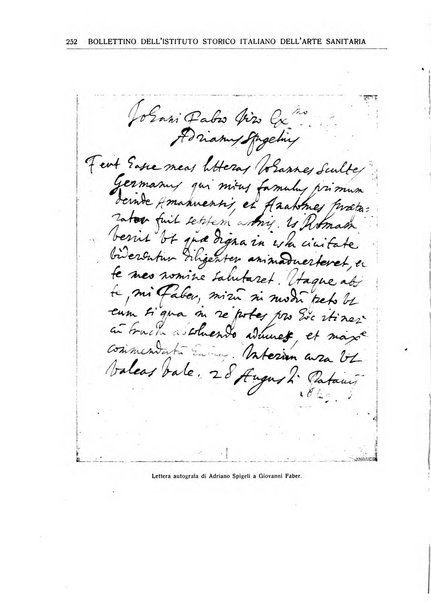 252 BOLLETTINO DELL'ISTITUTO STORICO ITALIANO DELL'ARTE SANITARIA
Iohani Fabro Viro Ex.mo
Adrianus Spigelius
Fert hasce meas litteras Iohannes Scultes
Germanus qui meus famulus primum
deinde Amanuensis et Anatomes præpa-
rator fuit septem annis. is Romam
venit Vt quæ digna in ista civitate
videntur diligenter animadverteret, et
te meo nomine salutaret. Itaque abs
te, mi Faber, mirū in modū peto Vt
eum si qua in re potes pro hoc itiner
absolvendo adiuves, et max.e
commendatū habeas. Interim cura Vt
Valeas Vale. 28 Augusti Patavii
Lettera autografa di Adriano Spigeli a Giovanni Faber.